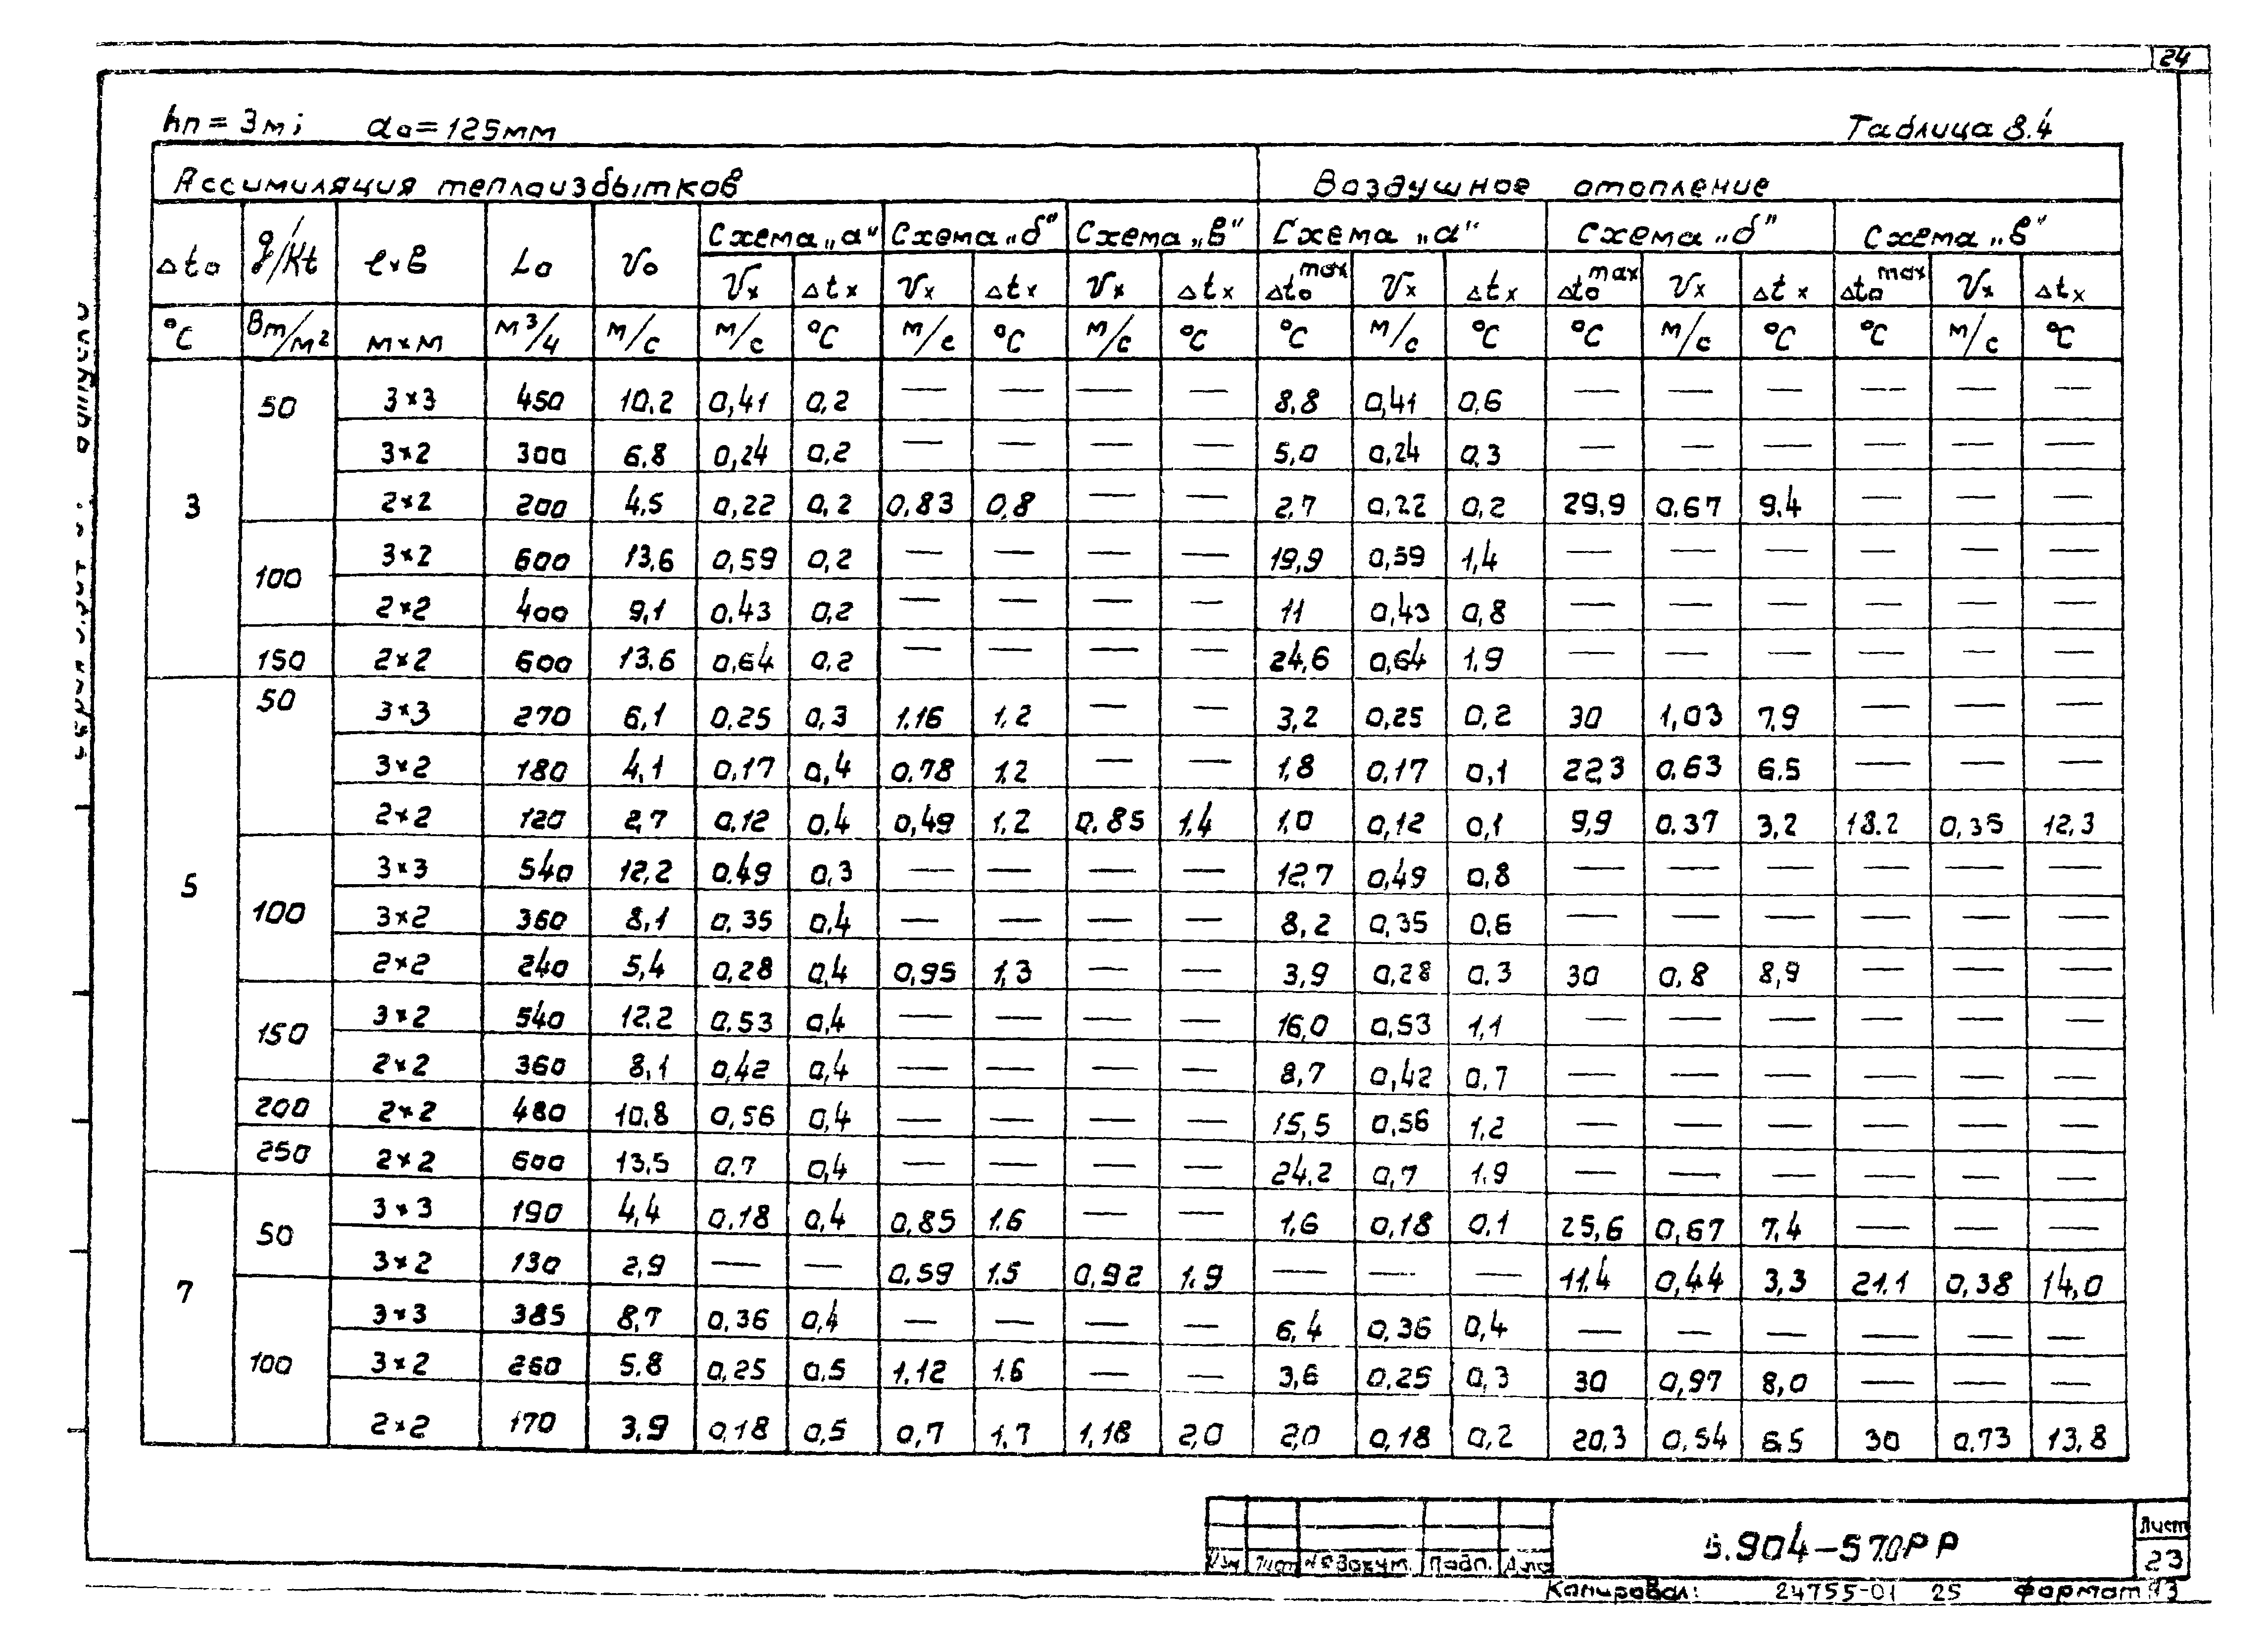 24
hп = 3м; do = 125мм Таблица 8.4
Ассимиляция теплоизбытков Воздушное отопление
Δto q/Kt ℓхв Lo Vo Схема „а" Схема „б" Схема „в" Схема „а" Схема „б" Схема „в"
Vx Δtx Vx Δtx Vx Δtx Δto max Vx Δtx Δto max Vx Δtx Δto max Vx Δtx
°C Вт/м2 м×м м3/ч м/с м/с °C м/с °C м/с °C °C м/с °C °C м/с °C °C м/с °C
3 50 3×3 450 10,2 0,41 0,2 — — — — 8,8 0,41 0,6 — — — — — —
3×2 300 6,8 0,24 0,2 — — — — 5,0 0,24 0,3 — — — — — —
2×2 200 4,5 0,22 0,2 0,83 0,8 — — 2,7 0,22 0,2 29,9 0,67 9,4 — — —
100 3×2 600 13,6 0,59 0,2 — — — — 19,9 0,59 1,4 — — — — — —
2×2 400 9,1 0,43 0,2 — — — — 11 0,43 0,8 — — — — — —
150 2×2 600 13,6 0,64 0,2 — — — — 24,6 0,64 1,9 — — — — — —
5 50 3×3 270 6,1 0,25 0,3 1,16 1,2 — — 3,2 0,25 0,2 30 1,03 7,9 — — —
3×2 180 4,1 0,17 0,4 0,78 1,2 — — 1,8 0,17 0,1 22,3 0,63 6,5 — — —
2×2 120 2,7 0,12 0,4 0,49 1,2 0,85 1,4 1,0 0,12 0,1 9,9 0,37 3,2 18,2 0,35 12,3
100 3×3 540 12,2 0,49 0,3 — — — — 12,7 0,49 0,8 — — — — — —
3×2 360 8,1 0,35 0,4 — — — — 8,2 0,35 0,6 — — — — — —
2×2 240 5,4 0,28 0,4 0,95 1,3 — — 3,9 0,28 0,3 30 0,8 8,9 — — —
150 3×2 540 12,2 0,53 0,4 — — — — 16,0 0,53 1,1 — — — — — —
2×2 360 8,1 0,42 0,4 — — — — 8,7 0,42 0,7 — — — — — —
200 2×2 480 10,8 0,56 0,4 — — — — 15,5 0,56 1,2 — — — — — —
250 2×2 600 13,5 0,7 0,4 — — — — 24,2 0,7 1,9 — — — — — —
7 50 3×3 190 4,4 0,18 0,4 0,85 1,6 — — 1,6 0,18 0,1 25,6 0,67 7,4 — — —
3×2 130 2,9 — — 0,59 1,5 0,92 1,9 — — — 11,4 0,44 3,3 21,1 0,38 14,0
100 3×3 385 8,7 0,36 0,4 — — — — 6,4 0,36 0,4 — — — — — —
3×2 260 5,8 0,25 0,5 1,12 1,6 — — 3,6 0,25 0,3 30 0,97 8,0 — — —
2×2 170 3,9 0,18 0,5 0,7 1,7 1,18 2,0 2,0 0,18 0,2 20,3 0,54 6,5 30 0,73 13,8
5.904-57.0РР Лист
Изм Лист № докум. Подп. Дата 23
Копировал: 24755-01 25 Формат А3